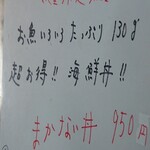 お魚いろいろ たっぷり 130g
超お得!! 海鮮丼!!
まかない丼 950円